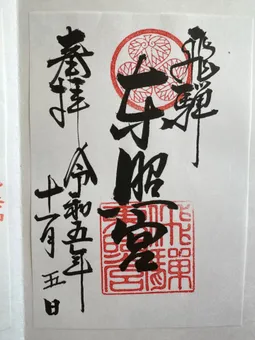 飛騨
東照宮
奉拝
令和五年
十一月五日
飛騨東照宮